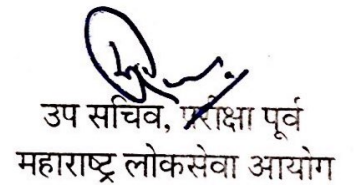 उप सचिव, परीक्षा पूर्व
महाराष्ट्र लोकसेवा आयोग